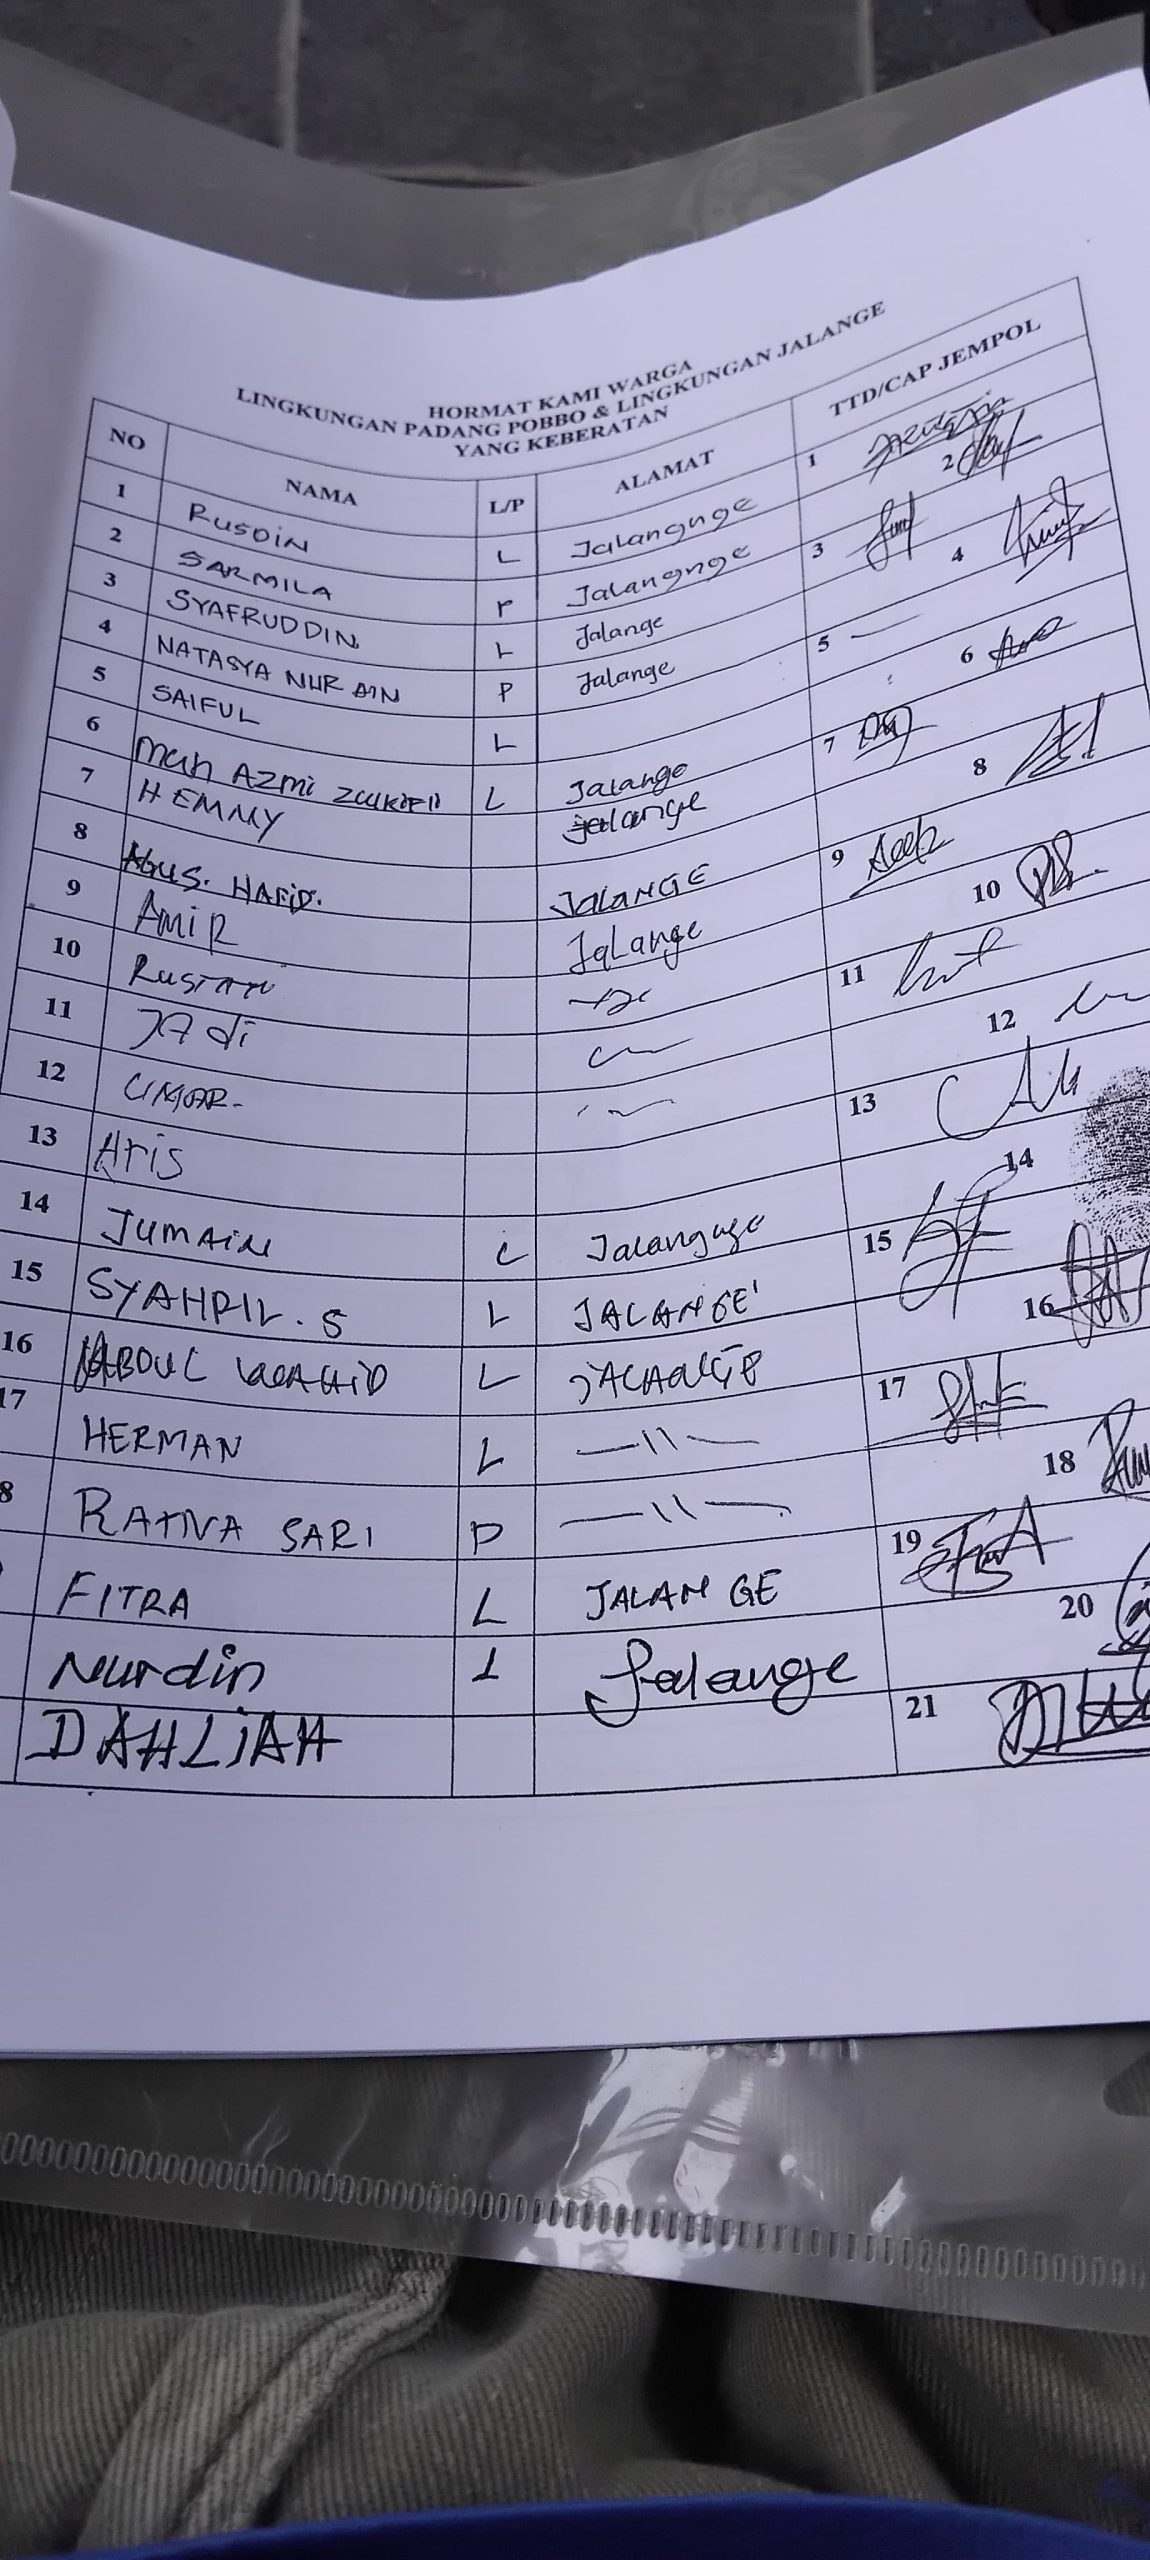 HORMAT KAMI WARGA
LINGKUNGAN PADANG POBBO & LINGKUNGAN JALANGE
YANG KEBERATAN
NO NAMA L/P ALAMAT TTD/CAP JEMPOL
1 RUSDIN L Jalangnge 1
2 SARMILA P Jalangnge 2
3 SYAFRUDDIN L Jalange 3
4 NATASYA NUR AIN P Jalange 4
5 SAIFUL L 5 —
6 Muh AZMI L Jalange 6
7 HEMMY Jalange 7
8 AGUS. HAFID. JALANGE 8
9 AMIR Jalange 9
10 10
11 11
12 UMAR- 12
13 Aris 13
14 JUMAIN L 14
15 SYAHRIL. S L JALANGE' 15
16 ABDUL WAHID L JALANGE 16
17 HERMAN L —11— 17
8 RATNA SARI P —11— 18
FITRA L JALANGE 19
Nurdin L Jalange 20
DAHLIAH 21